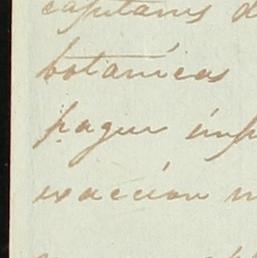 capitanes d
botanicas
pague imp
exaccion n